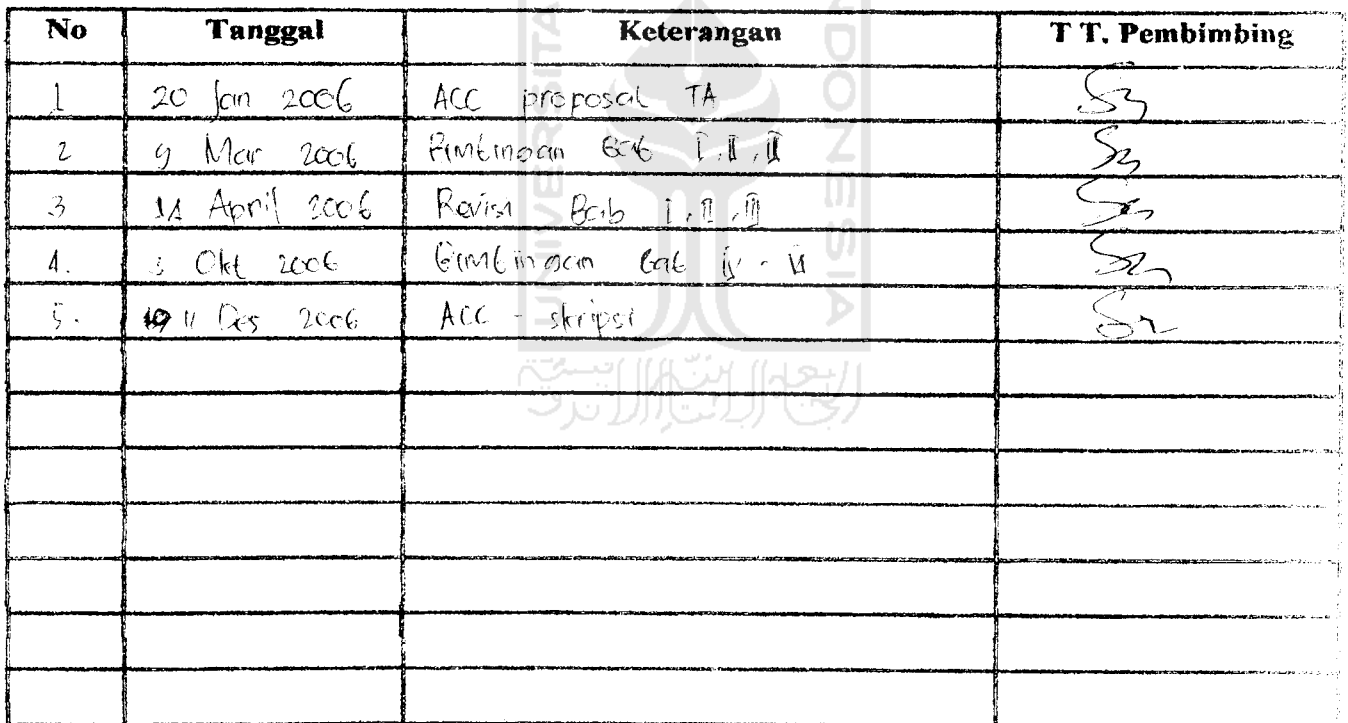 No Tanggal Keterangan T T. Pembimbing
1 20 Jan 2006 ACC proposal TA
2 9 Mar 2006 Bimbingan Bab I, II, III
3 11 April 2006 Revisi Bab I, II, III
4. 3 Okt 2006 Bimbingan Bab IV - VI
5. 11 Des 2006 ACC - skripsi
UNIVERSITA
INDONESIA